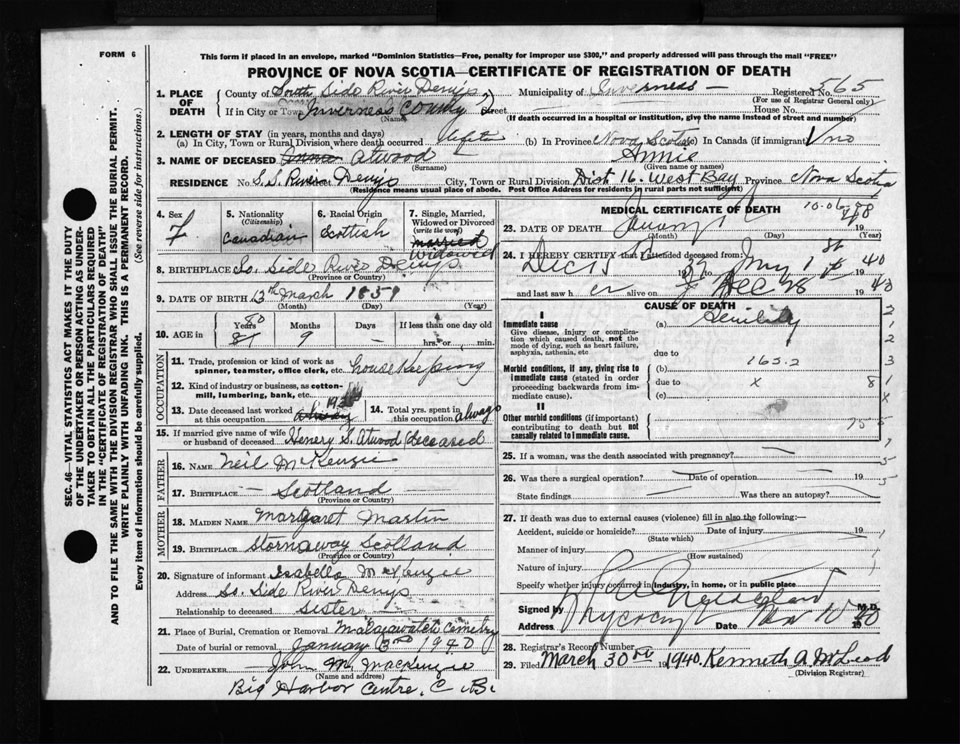 FORM 6
This form if placed in an envelope, marked "Dominion Statistics—Free, penalty for improper use $300," and properly addressed will pass through the mail "FREE"
PROVINCE OF NOVA SCOTIA—CERTIFICATE OF REGISTRATION OF DEATH
SEC. 46—VITAL STATISTICS ACT MAKES IT THE DUTY
OF THE UNDERTAKER OR PERSON ACTING AS UNDER-
TAKER TO OBTAIN ALL THE PARTICULARS REQUIRED
IN THE "CERTIFICATE OF REGISTRATION OF DEATH"
AND TO FILE THE SAME WITH THE DIVISION REGISTRAR WHO SHALL ISSUE THE BURIAL PERMIT.
WRITE PLAINLY WITH UNFADING INK. THIS IS A PERMANENT RECORD.
Every item of information should be carefully supplied. (See reverse side for instructions.)
1. PLACE OF DEATH
County of South Side River Denys Municipality of Inverness — Registered No. 565
(For use of Registrar General only)
If in City or Town Inverness County Street — House No.
(Name) (If death occurred in a hospital or institution, give the name instead of street and number)
2. LENGTH OF STAY (in years, months and days)
(a) In City, Town or Rural Division where death occurred life (b) In Province Nova Scotia In Canada (if immigrant) no
3. NAME OF DECEASED Atwood Annie
(Surname) (Given name or names)
RESIDENCE No. S.S. River Denys City, Town or Rural Division Dist 16. West Bay Province Nova Scotia
(Residence means usual place of abode. Post Office Address for residents in rural parts not sufficient)
4. Sex F
5. Nationality (Citizenship) Canadian
6. Racial Origin Scottish
7. Single, Married, Widowed or Divorced (write the word) married Widowed
8. BIRTHPLACE So. Side River Denys
(Province or Country)
9. DATE OF BIRTH 13th March 1859
(Day) (Month) (Year)
10. AGE in Years 80 Months 9 Days — If less than one day old hrs. or min.
OCCUPATION
11. Trade, profession or kind of work as spinner, teamster, office clerk, etc. house Keeping
12. Kind of industry or business, as cotton-mill, lumbering, bank, etc.
13. Date deceased last worked at this occupation
14. Total yrs. spent in this occupation always
15. If married give name of wife or husband of deceased Henery S. Atwood deceased
FATHER
16. NAME Neil McKenzie
17. BIRTHPLACE — Scotland —
(Province or Country)
MOTHER
18. MAIDEN NAME Margaret Martin
19. BIRTHPLACE Stornaway Scotland
(Province or Country)
20. Signature of informant Isabella McKenzie
Address So. Side River Denys
Relationship to deceased Sister
21. Place of Burial, Cremation or Removal Malagawatch Cemetery
Date of burial or removal January 3rd 1940
22. UNDERTAKER John M. Mackenzie
(Name and address)
Big Harbor Centre. C. B.
MEDICAL CERTIFICATE OF DEATH
23. DATE OF DEATH 19
(Month) (Day) (Year)
24. I HEREBY CERTIFY that I attended deceased from:
Dec 15 19 39 to 1 19 40
and last saw h er alive on Dec 28 19
CAUSE OF DEATH
I
Immediate cause
Give disease, injury or complication which caused death, not the mode of dying, such as heart failure, asphyxia, asthenia, etc
(a) Senility
due to
Morbid conditions, if any, giving rise to immediate cause (stated in order proceeding backwards from immediate cause).
(b) 162.2
due to x
(c)
II
Other morbid conditions (if important) contributing to death but not causally related to immediate cause.
25. If a woman, was the death associated with pregnancy?
26. Was there a surgical operation? Date of operation 19
State findings Was there an autopsy?
27. If death was due to external causes (violence) fill in also the following:—
Accident, suicide or homicide? Date of injury 19
(State which)
Manner of injury
(How sustained)
Nature of injury
Specify whether injury occurred in industry, in home, or in public place
Signed by M.D.
Address Whycocomagh Date
28. Registrar's Record Number
29. Filed March 30th 1940. Kenneth A. McLeod
(Division Registrar)